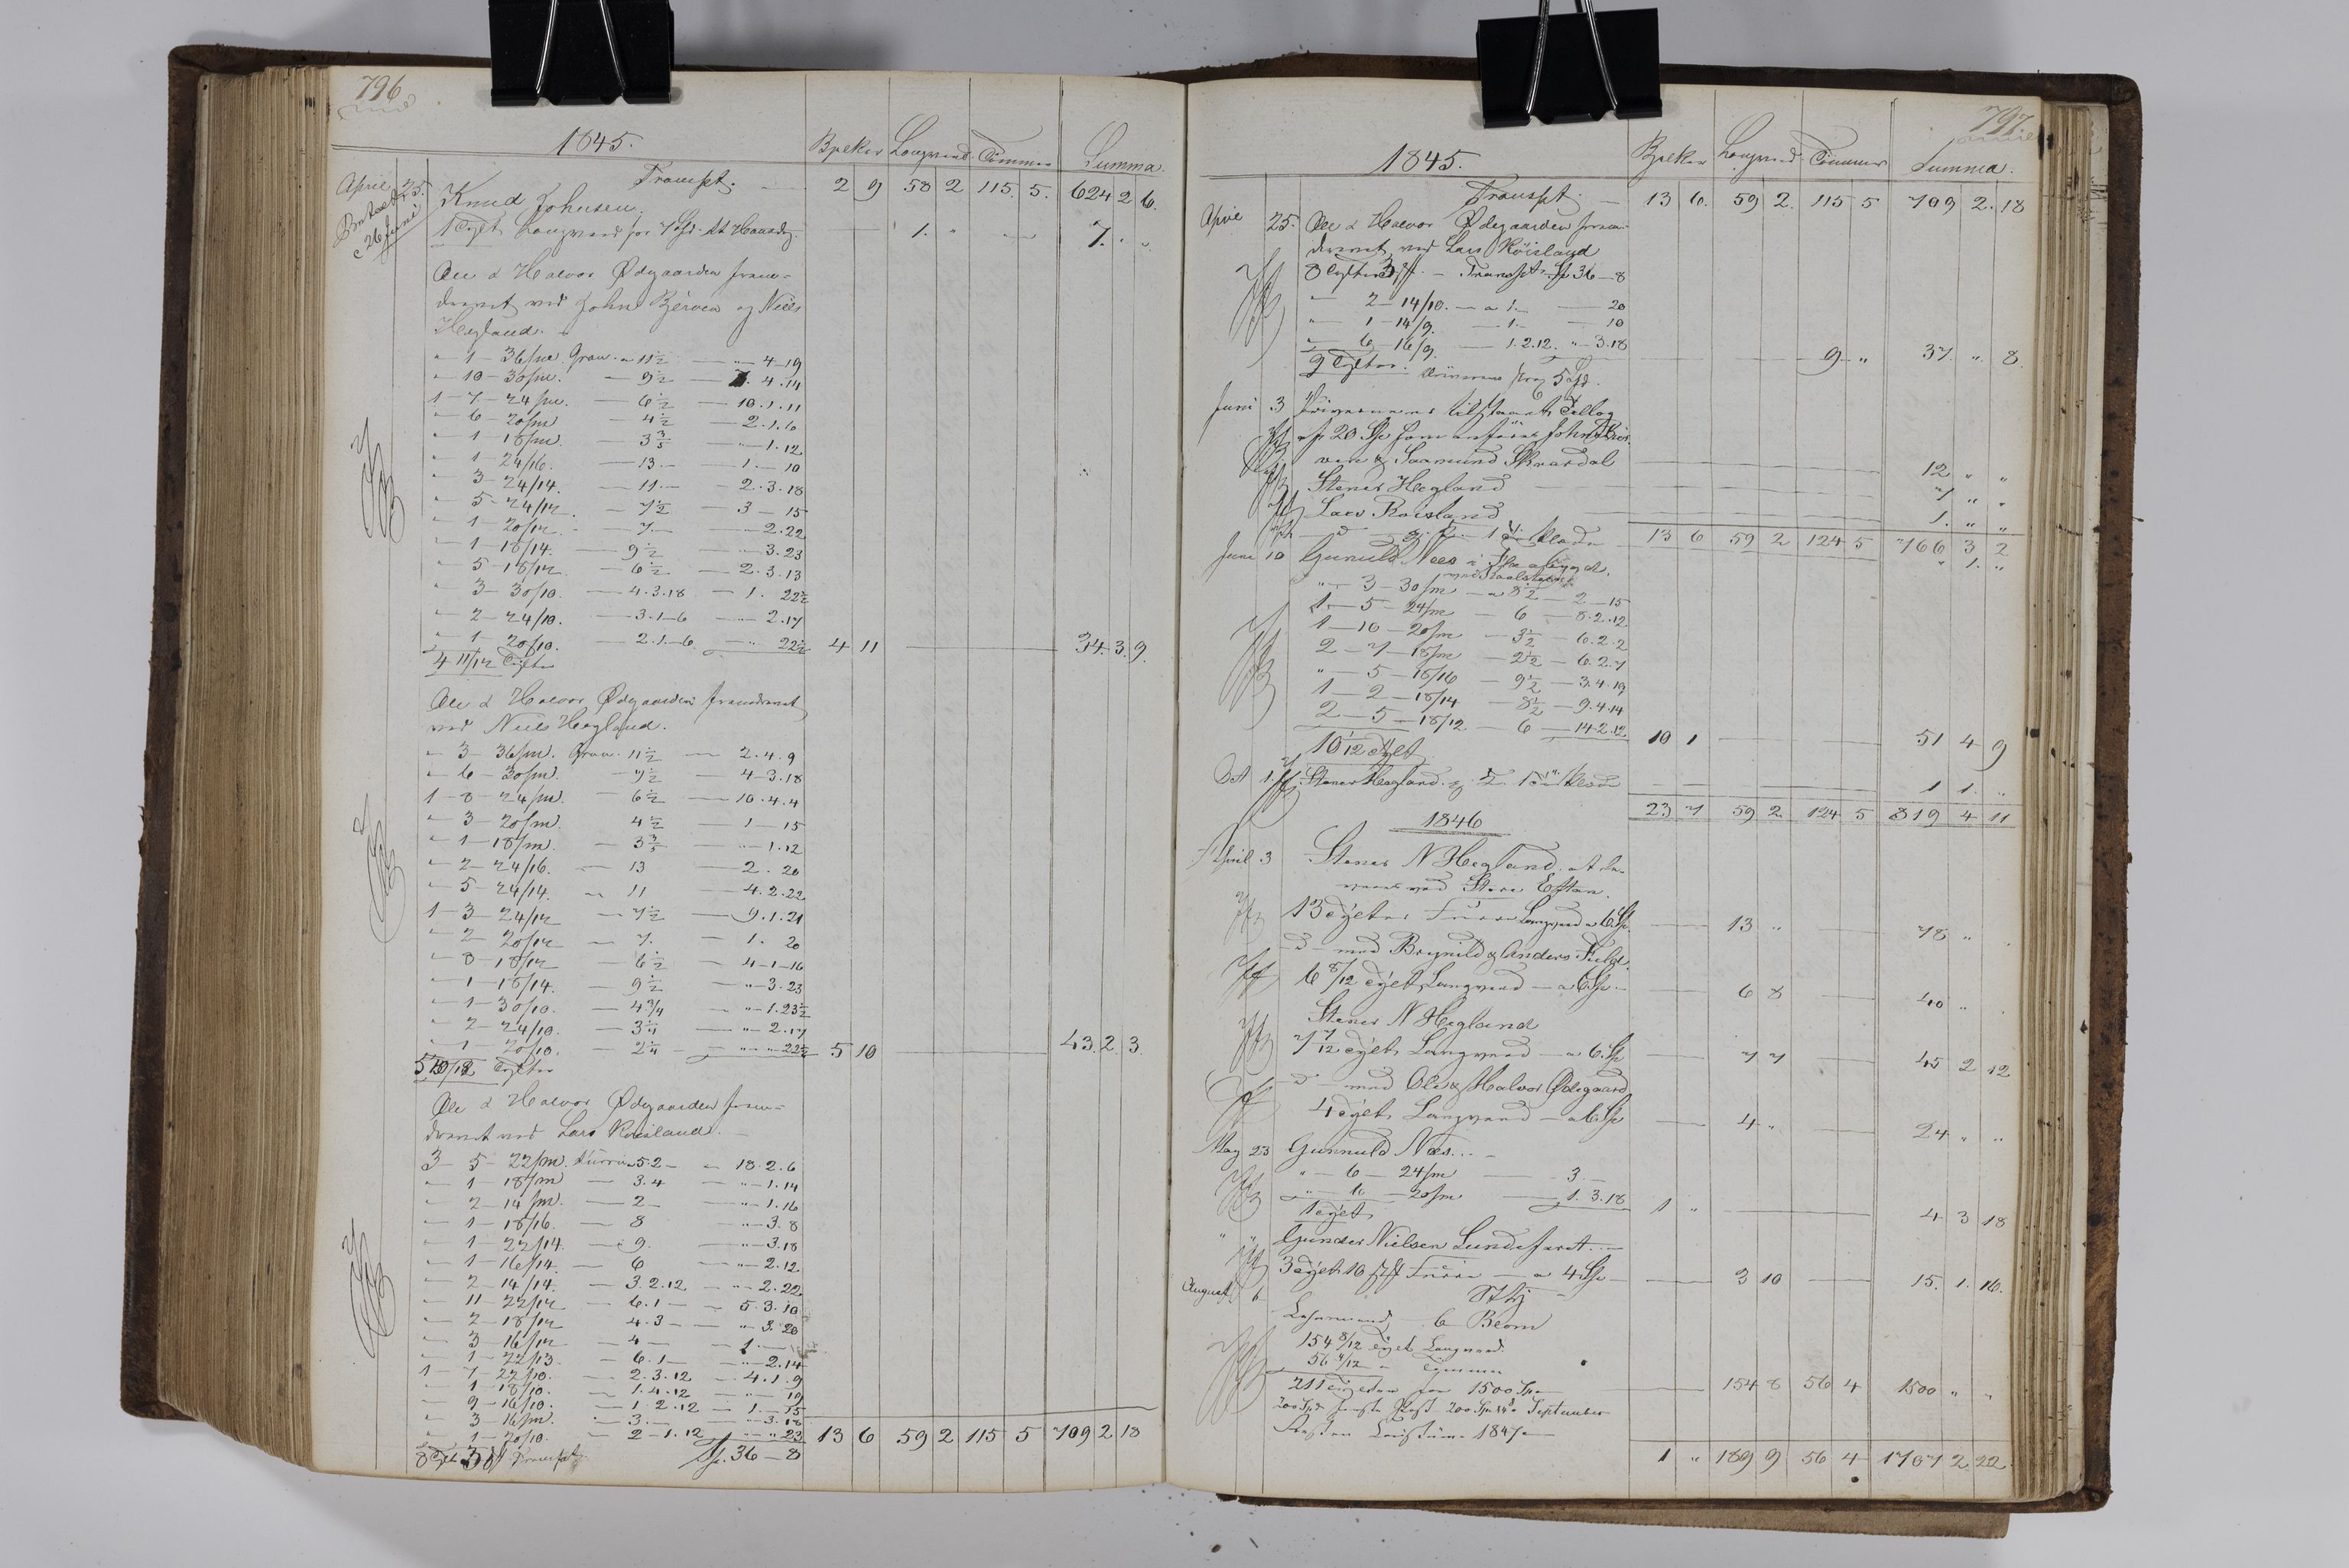 796
1845.
Bjelker Langved Tømmer Summa.
April 25. Transpt. 2 9 58 2 115 5. 624 2 6.
Betalt 26 Juni
Knud Johnsen
1 Tylt Langved for 7 Spd. 1. " 7. " "
Ole & Halvor Ødegaarden frem=
drevet ved John Bjerven og Niels
Hegland.
" 1 - 36/m. Gran. a 11½ — " 4 19
" 10 - 30/m. — 9½ — 7. 4. 14
1 - 7 - 24/m. — 6½ — 10. 1. 11
" 6 - 20/m — 4½ — 2. 1. 6
" 1 - 18/m. — 3 3/5 — " 1. 12
" 1 - 24/16. — 13. — 1. — 10
" 3 - 24/14. — 11. — 2. 3. 18
" 5 - 24/12. — 7½ — 3 — 15
" 1 - 20/12. — 7. — " 2. 22
" 1 - 18/14. — 9½ — " 3. 23
" 5 - 18/12. — 6½ — 2. 3. 13
" 3 - 30/10. — 4. 3. 18 — 1. 22½
" 2 - 24/10. — 3. 1. 6 — " 2. 17
" 1 - 20/10. — 2. 1. 6 — " 22½ 4 11 34. 3. 9.
4 11/12 Tylter
Ole & Halvor Ødegaarden fremdrevet
ved Niels Hegland.
" 3 - 36/m. Gran. 11½ — 2. 4. 9
" 6 - 30/m. — 9½ — 4. 3. 18
1 - 8 - 24/m. — 6½ — 10. 4. 4
" 3 - 20/m. 4½ — 1 — 15
" 1 - 18/m. — 3 3/5 — " 1. 12
" 2 - 24/16. — 13 — 2. 20
" 5 - 24/14. — 11 — 4. 2. 22
1 - 3 - 24/12 — 7½ — 9. 1. 21
" 2 - 20/12 — 7. — 1. 20
" 8 - 18/12 — 6½ — 4 - 1 - 16
" 1 - 18/14. — 9½ — " 3. 23
" 1 - 30/10. — 4 3/4 — " 1. 23½
" 2 - 24/10. — 3¼ — " 2. 17
" 1 - 20/10. — 2¼ — " " 22½ 5 10 43. 2. 3.
5 10/12 Tylter
Ole & Halvor Ødegaarden frem=
drevet ved Lars Roisland.
3 - 5 - 22/m. Furru 5. 2 — " 18. 2. 6
" 1 - 18/m — 3. 4 — " 1. 14
" 2 - 14/m. — 2 — " 1. 16
" 1 - 18/16. — 8 — " 3. 8
" 1 - 22/14. — 9. — " 3. 18
" 1 - 16/14. — 6 — " 2. 12
" 2 - 14/14. — 3. 2. 12 — " 2. 22
" 11 - 22/12 — 6. 1 — 5. 3. 10
" 2 - 18/12 4. 3 — " 3. 20
" 3 - 16/12 — 4 — 1.
" 1 - 22/13. — 6. 1 — " 2. 14
1 - 7 - 22/10. — 2. 3. 12 — 4. 1. 9
" 1 - 18/10. — 1. 4. 12 — " 19
" 9 - 16/10. — 1. 2. 12 — 1. 15
" 3 - 16/m. — 3. — " 3. 18
" 1 - 20/10. — 2 - 1. 12 — " 23 13 6 59 2 115 5 709 2 18
8 Tylt Transpt Sp. 36 — 8
797.
1845.
Bjelker Langved Tømmer Summa.
Transpt. — 13 6. 59 2. 115 5 709 2. 18
April 25. Ole & Halvor Ødegaarden frem=
drevet ved Lars Röisland
8 Tylter 3 Transpt. Sp 36 — 8
" 2 - 14/10. — a 1. — 20
" 1 - 14/9. — 1. — 10
" 6 - 16/9. — 1. 2. 12. " 3. 18
9 Tylter. 9 " 37 " 8.
Juni 3 Driverne er tilstaaet Tillæg
af 20 Sp som anføres John Bier-
ven & Saamund Skrærdal 12 " "
Stener Hegland 7 " "
Lars Roisland 1. " "
13 6 59 2 124 5 766 3 2
" 1. "
Juni 10 Gunuld Næs
" 3 - 30/m — a 8½ — 2 — 15
1 - 5 - 24/m — 6 — 8. 2. 12
1 - 10 - 20/m — 3½ — 6. 2. 2
2 - 7 - 18/m — 2½ — 6. 2. 7
" 5 - 18/16 — 9½ — 3. 4. 19
1 - 2 - 18/14 — 8½ — 9. 4. 14
2 - 5 - 18/12 — 6 — 14. 2. 12 10 1 51 4 9
10 1/12 Tylt
Oct 1. Stener Hegland 1 1. "
23 7 59 2 124 5 819 4 11
1846
April 3 Stener N Hegland at le-
veres ved Store Eftan.
13 Tylter Furru Langved a 6 Sp. 13 " 78 "
do med Brynild & Anders Field.
6 8/12 Tylt Langved — a 6 Sp. — 6 8 40 "
Stener N Hegland
7 7/12 Tylt Langved — a 6. Sp 7 7 45 2 12
do med Ole & Halvor Ødegaard
4 Tylt Langved — a 6 Sp 4 " 24 " "
May 23 Gunnuld Næs...
" 6 - 24/m — 3. —
" 6 - 20/m — 1. 3. 18 1 " 4 3 18
1 Tylt
" Gunder Nielsen Lundefaret. —
3 Tylt 10 Furru — a 4 Sp — 3 10 15. 1. 16.
August 6
154 8/12 Tylt Langved.
56 4/12 " Tømmer
211 Tylter for 1500 Sp — 154 8 56 4 1500 " "
200 Spd 200 Sp September
1847
1 " 189 9 56 4 1707 2 22